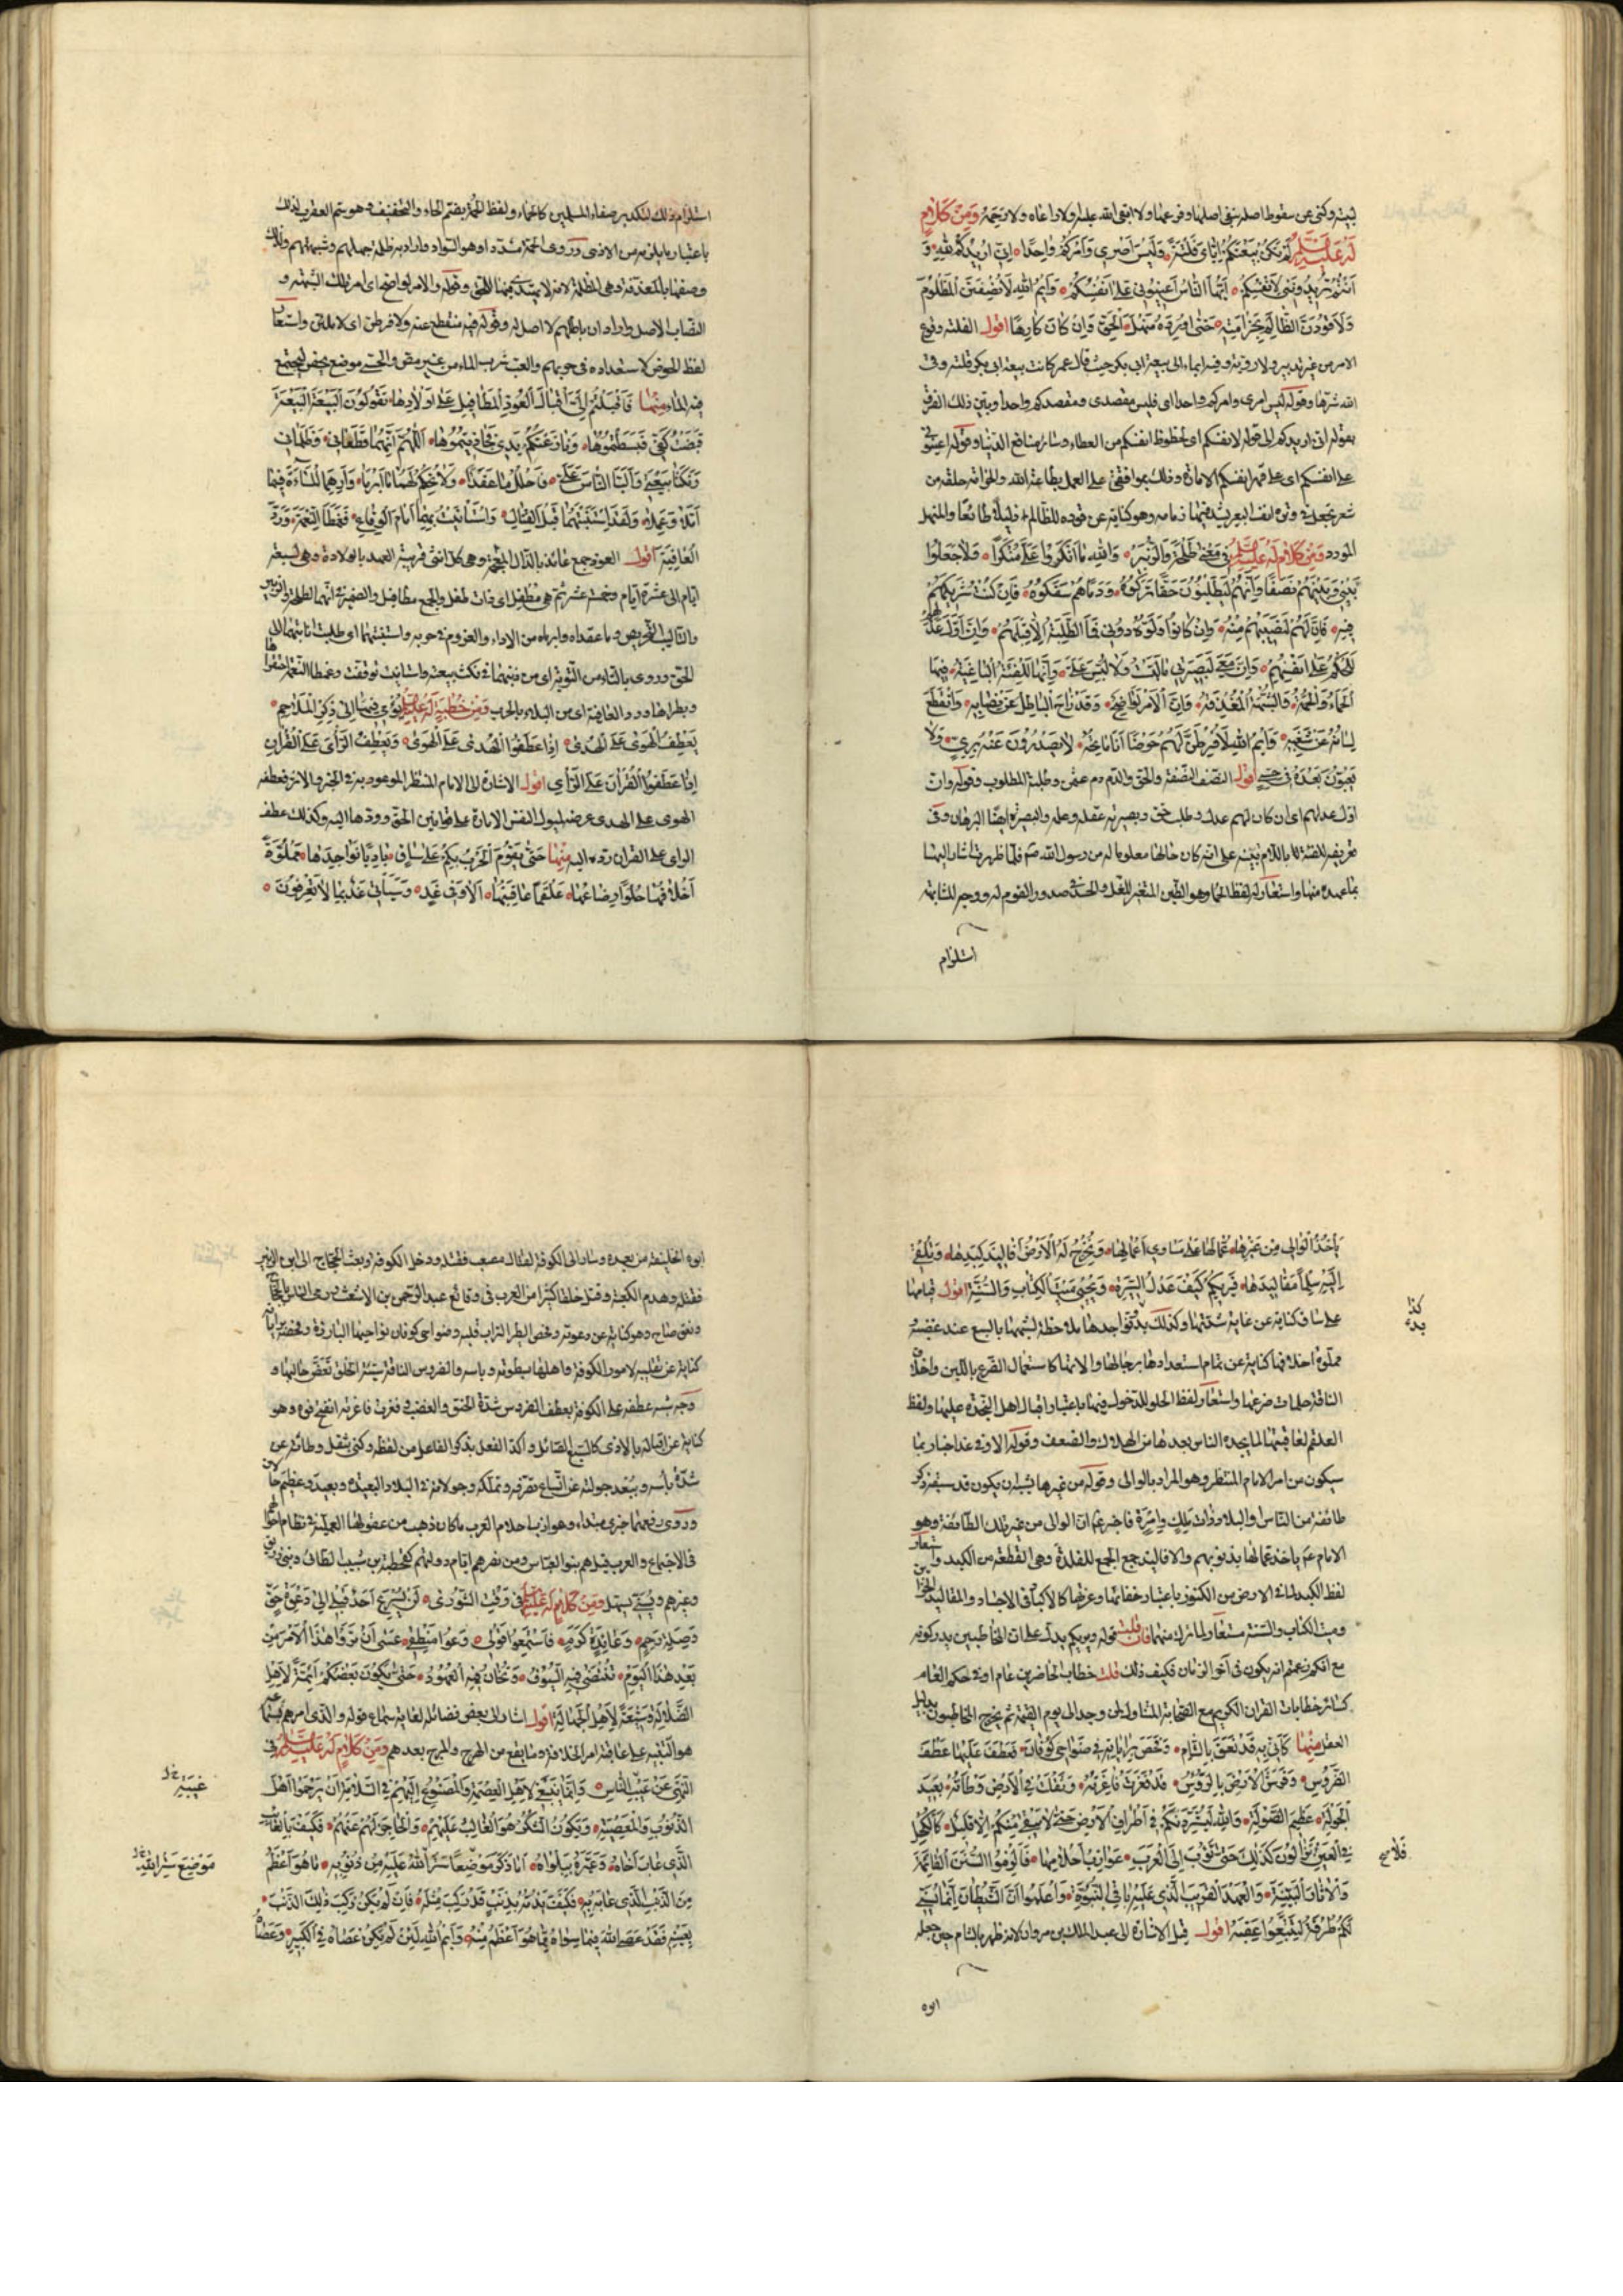 بيته وكنى عن سقوط اصله بنفى اصلها وفرعها ولا ابقى الله عليه ولا دعاه ولا رحمه ومن كلام
له عليه السلم لم تكن بيعتكم اياى فلتة وليس امرى وامركم واحدا انى اريدكم لله و
انتم تريدوننى لانفسكم ايها الناس اعينونى على انفسكم وايم الله لانصفن المظلوم
ولاقودن الظالم بخزامته حتى اورده منهل الحق وان كان كارها اقول الفلتة وقوع
الامر من غير تدبير ولا روية وفيه ايماء الى بيعة ابى بكر حيث قال عمر كانت بيعة ابى بكر فلتة وقى
الله شرها وقوله ليس امرى وامركم واحدا اى فليس مقصدى ومقصدكم واحدا وبين ذلك الفرق
بقوله انى اريدكم الى قوله لانفسكم اى لحظوظ انفسكم من العطاء وسائر منافع الدنيا وقوله اعينونى
على انفسكم اى على قهر انفسكم الامارة وذلك بموافقتى على العمل بطاعة الله والخزامة حلقة من
شعر تجعل فى وترة انف البعير يشد فيها زمامه وهو كناية عن قوده للظالم ذليلا طائعا والمنهل
المورد ومن كلام له عليه السلم فى معنى طلحة والزبير والله ما انكروا على منكرا ولا جعلوا
بينى وبينهم نصفا وانهم ليطلبون حقا تركوه ودما هم سفكوه فان كنت شريكهم
فيه فان لهم لنصيبهم منه وان كانوا ولوه دونى فما الطلبة الا قبلهم وان اول عدلهم
للحكم على انفسهم وان معى لبصيرتى ما لبست ولا لبس على وانها للفئة الباغية فيها
الحماء والحمة والشبهة المغدفة وان الامر لواضح وقد زاح الباطل عن نصابه وانقطع
لسانه عن شغبه وايم الله لافرطن لهم حوضا انا ماتحه لا يصدرون عنه برى ولا
يعبون بعده فى حسى اقول النصف النصفة والحق والدم دم عثمن وطلبة المطلوب وقوله وان
اول عدلهم اى ان كان لهم عدل وطلب حق وبصيرته عقله وعلمه والبصيرة ايضا البرهان وفى
تعريفه للفئة بالالف واللام تنبيه على انه كان حالها معلوما له من رسول الله صم فلما ظهرت اشار اليها
بما عهده منها واستعار له لفظ الحما وهو الطين المتغير للغل والحسد فى صدور القوم له ووجه المشابهة
استلزام
استلزام ذلك لتكدير صفاء المسلمين كالحماء ولفظ الحمة بضم الحاء والتخفيف وهو سم العقرب لذلك
باعتبار ما يلزمه من الاذى وروى الحمة مشددا وهو السواد واراد به ظلمة جهلهم وشبهتهم ولذلك
وصفها بالمغدفة وهى المظلمة لانه لا يهتدى فيها للحق وقوله والامر لواضح اى امر تلك الشبهة و
النصاب الاصل واراد ان باطلهم لا اصل له وقوله فهو منقطع عنه ولافرطن اى لاملئن واستعار
لفظ الحوض لاستعداده فى حربهم والعب شرب الماء من غير مص والحسى موضع يحفر ليجتمع
فيه الماء منها فاقبلتم الى اقبال العوذ المطافيل على اولادها تقولون البيعة البيعة
قبضت كفى فبسطتموها ونازعتكم يدى فجاذبتموها اللهم انهما قطعانى وظلمانى
ونكثا بيعتى والبا الناس على فاحلل ما عقدا ولا تحكم لهما ما ابرما وارهما المساءة فيما
املا وعملا ولقد استثبتهما قبل القتال واستانيت بهما امام الوقاع فغمطا النعمة وردا
العافية اقول العوذ جمع عائذ بالذال المعجمة وهى كل انثى قريبة العهد بالولادة وهى لسبعة
ايام الى عشرة ايام وخمسة عشر ثم هى مطفل اى ذات طفل والجمع مطافيل والضمير فى انهما لطلحة والزبير
والتاليب التحريص وما عقداه وابرماه من الاراء والعزوم فى حربه واستثبتهما اى طلبت اثابتهما الى
الحق وروى بالتاء من التوبة اى من ذنبهما فى نكث بيعته واستانيت توقفت وغمطا النعمة احتقراها
وبطراها ورد العافية اى من البلاء بالحرب ومن خطبة له عليه السلم يومى فيها الى ذكر الملاحم
يعطف الهوى على الهدى اذا عطفوا الهدى على الهوى ويعطف الراى على القران
اذا عطفوا القران على الراى اقول الاشارة الى الامام المنتظر الموعود به فى الخبر والاثر فعطفه
الهوى على الهدى عرضه لميول النفس الامارة على قوانين الحق وردها اليه وكذلك عطف
الراى على القران رده اليه منها حتى تقوم الحرب بكم على ساق باديا نواجذها مملوة
اخلافها حلوا رضاعها علقما عاقبتها الا وفى غد وسياتى غد بما لا تعرفون
ياخذ الوالى من غيرها عمالها على مساوى اعمالها وتخرج له الارض افاليذ كبدها وتلقى
اليه سلما مقاليدها فيريكم كيف عدل السيرة ويحيى ميت الكتاب والسنة اقول قيامها
على ساق كناية عن غاية شدتها وكذلك بدو نواجذها ملاحظة لشبهها بالسبع عند غضبه و
كذا
بدء
مملوة اخلافها كناية عن تمام استعدادها برجالها والاتها كاستعمال الضرع باللبن واخلاف
الناقة حلمات ضرعها واستعار لفظ الحلو للدخول فيها باعتبار اقبال اهل النجدة عليها ولفظ
العلقم لعاقبتها لما يجده الناس بعدها من الهلاك والضعف وقوله الا وفى غد اخبار بما
سيكون من امر الامام المنتظر وهو المراد بالوالى وقوله من غيرها يشبه ان يكون قد سبقه ذكر
طائفة من الناس والبلاد ذات ملك وامرة فاخبر عم ان الوالى من غير تلك الطائفة وهو
الامام عم ياخذ عمالها بذنوبهم والافاليذ جمع الجمع للفلذة وهى القطعة من الكبد واستعار
لفظ الكبد لما فى الارض من الكنوز باعتبار خفائها وعزتها كالاكباد فى الاجساد والمقاليد الخزاين
وميت الكتاب والسنة مستعار لما ترك منهما فان قلت قوله ويريكم يدل على ان المخاطبين يدركونه
مع انكم زعمتم انه يكون فى اخر الزمان فكيف ذلك قلت خطاب الحاضرين عام او فى حكم العام
كسائر خطابات القران الكريم مع الصحابة المتناول لمن وجد الى يوم القيمة ثم يخرج المخاطبون بدليل
العقل منها كانى به قد نعق بالشام وفحص براياته فى ضواحى كوفان فعطف عليها عطف
الضروس وفرش الارض بالرؤس قد فغرت فاغرته وثقلت فى الارض وطاته بعيد
الجولة عظيم الصولة والله ليشردنكم فى اطراف الارض حتى لا يبقى منكم الا قليل كالكحل
فى العين فلا تزالون كذلك حتى تؤب الى العرب عوازب احلامها فالزموا السنن القائمة
فلا صح
والاثار البينة والعهد القريب الذى عليه باقى النبوة واعلموا ان الشيطان انما يسنى
لكم طرقه لتتبعوا عقبه اقول قيل الاشارة الى عبد الملك بن مروان لانه ظهر بالشام حين جعله
ابوه
ابوه الخليفة من بعده وسار الى الكوفة لقتال مصعب فقتله ودخل الكوفة وبعث الحجاج الى ابن الزبير
فقتله وهدم الكعبة وقتل خلقا كثيرا من العرب فى وقائع عبد الرحمن بن الاشعث ورمى الناس بالحجاج
ونعق صاح وهو كناية عن دعوته وفحص الطير التراب قلبه وضواحى كوفان نواحيها البارزة وفحصه براياته
كناية عن تقليبه لامور الكوفة واهلها بسطوته وباسه والضروس الناقة سيئة الخلق تعض حالبها و
وجه شبه عطفه على الكوفة بعطف الضروس شدة الحنق والغضب وفغرت فاغرته انفتح فوه وهو
كناية عن اقباله بالاذى كالسبع الصائل واكد الفعل بذكر الفاعل من لفظه وكنى بثقل وطاته عن
شدة باسه وببعد جولته عن اتساع تصرفه وتملكه وجولانه فى البلاد البعيدة وبعيد وعظيم حالان
وروى رفعهما خبرى مبتداء وهو ازب احلام العرب ما كان ذهب من عقولها العملية فى نظام احوالهم
فى الاجتماع والعرب قيل هم بنو العباس ومن نصرهم ايام دولتهم كقحطبة بن شبيب الطائى وبنى رزيق
وغيرهم ويسنى يسهل ومن كلام له عليه السلم فى وقت الشورى لن يسرع احد قبلى الى دعوة حق
وصلة رحم وعائدة كرم فاسمعوا قولى وعوا منطقى عسى ان تروا هذا الامر من
بعد هذا اليوم تنتضى فيه السيوف وتخان فيه العهود حتى يكون بعضكم ائمة لاهل
الضلالة وشيعة لاهل الجهالة اقول اشار الى بعض فضائله لغاية سماع قوله والذى امرهم بسماعه
هو التنبيه على عاقبة امر الخلافة وما يقع من الهرج والمرج بعدهم ومن كلام له عليه السلم فى
النهى عن عيب الناس وانما ينبغى لاهل العصمة والمصنوع اليهم فى السلامة ان يرحموا اهل
غيبة خ ل
الذنوب والمعصية ويكون الشكر هو الغالب عليهم والحاجز لهم عنهم فكيف بالعائب
الذى عاب اخاه وعيره ببلواه اما ذكر موضعا ستر الله عليه من ذنوبه ما هو اعظم
موضع ستر الله خ ل
من الذنب الذى عابه به فكيف يذمه بذنب قد ركب مثله فان لم يكن ركب ذلك الذنب
بعينه فقد عصى الله فيما سواه مما هو اعظم منه وايم الله لئن لم يكن عصاه فى الكبير وعصاه